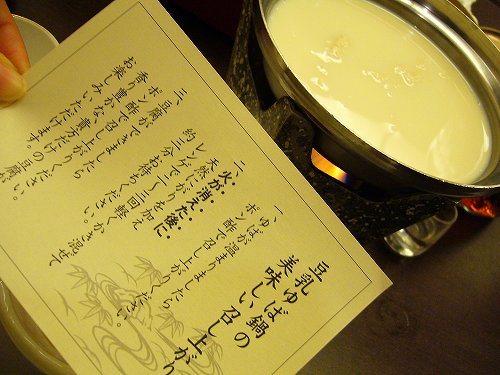 豆乳ゆば鍋の
美味しい召し上がり
一、ゆばが温まりましたら
ポン酢で召し上がりください。
二、火が消えた後に、
天然にがりを加え
レンゲで二～三回軽くかき混ぜて
約二三分お待ちください。
三、豆腐ができましたら
ポン酢で召し上がりください。
香り豊かな、貴方だけの豆腐が
お楽しみいただけます。